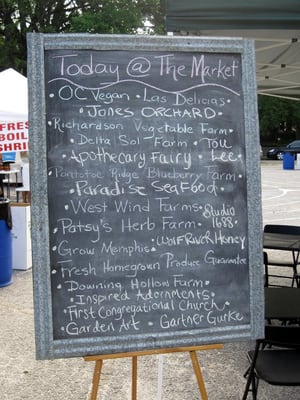 Today @ The Market
• OC Vegan • Las Delicias •
• Jones Orchard •
Richardson Vegetable Farm •
• Delta Sol Farm • Tou
• Apothecary Fairy • Lee •
Pontotoc Ridge Blueberry Farm •
• Paradise Seafood •
• West Wind Farms • Studio
• Patsy's Herb Farm • 1688 •
• Grow Memphis • Wolf River Honey
• Fresh Homegrown Produce Guarantee
• Downing Hollow Farm •
• Inspired Adornments •
• First Congregational Church •
• Garden Art • Gartner Gurke •
FRES
BOIL
SHRI